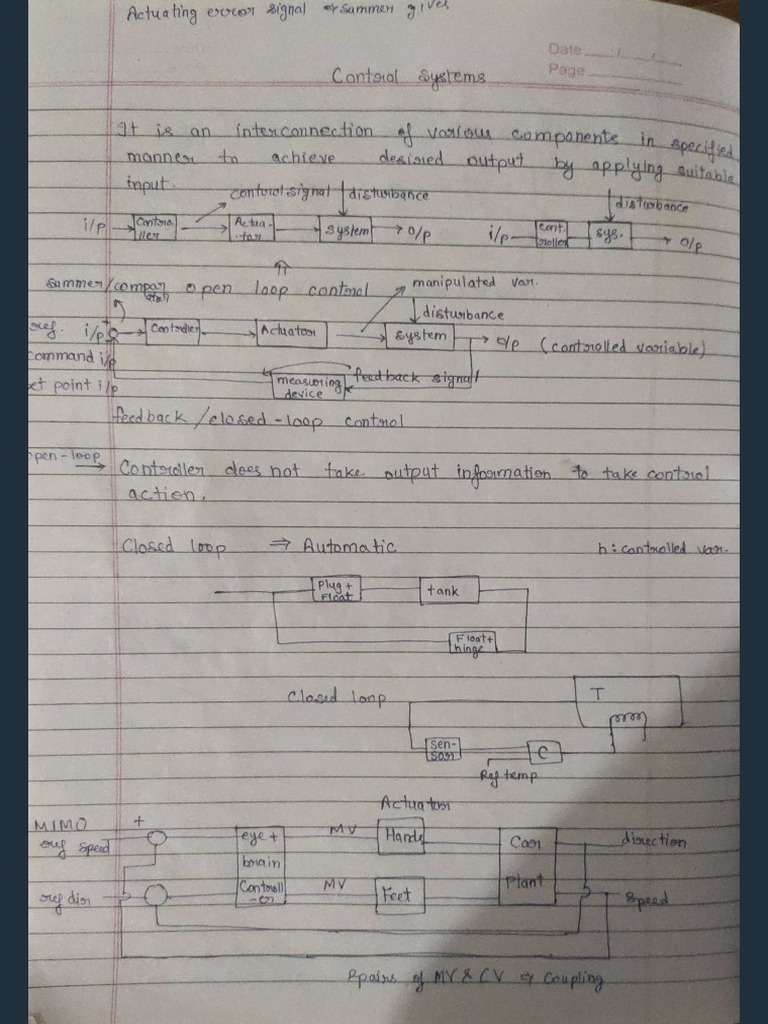 Actuating error signal summer gives
Date
Page
Control Systems
It is an interconnection of various components in specified
manner to achieve desired output by applying suitable
input.
control signal disturbance disturbance
i/p Controller Actua-tor system o/p i/p Cont-roller sys. o/p
summer/comparator open loop control manipulated var.
disturbance
ref. i/p Controller Actuator system o/p (controlled variable)
command i/p
set point i/p measuring device feedback signal
feedback/closed-loop control
open-loop → Controller does not take output information to take control
action.
Closed loop ⇒ Automatic h: controlled var.
Plug + Float tank
Float + hinge
Closed loop T
Sen-sor C
Ref temp
Actuator
MIMO + eye + brain Controll-er MV Hands Car Plant direction
ref speed
ref dir MV Feet speed
2pairs of MV & CV ⇒ Coupling